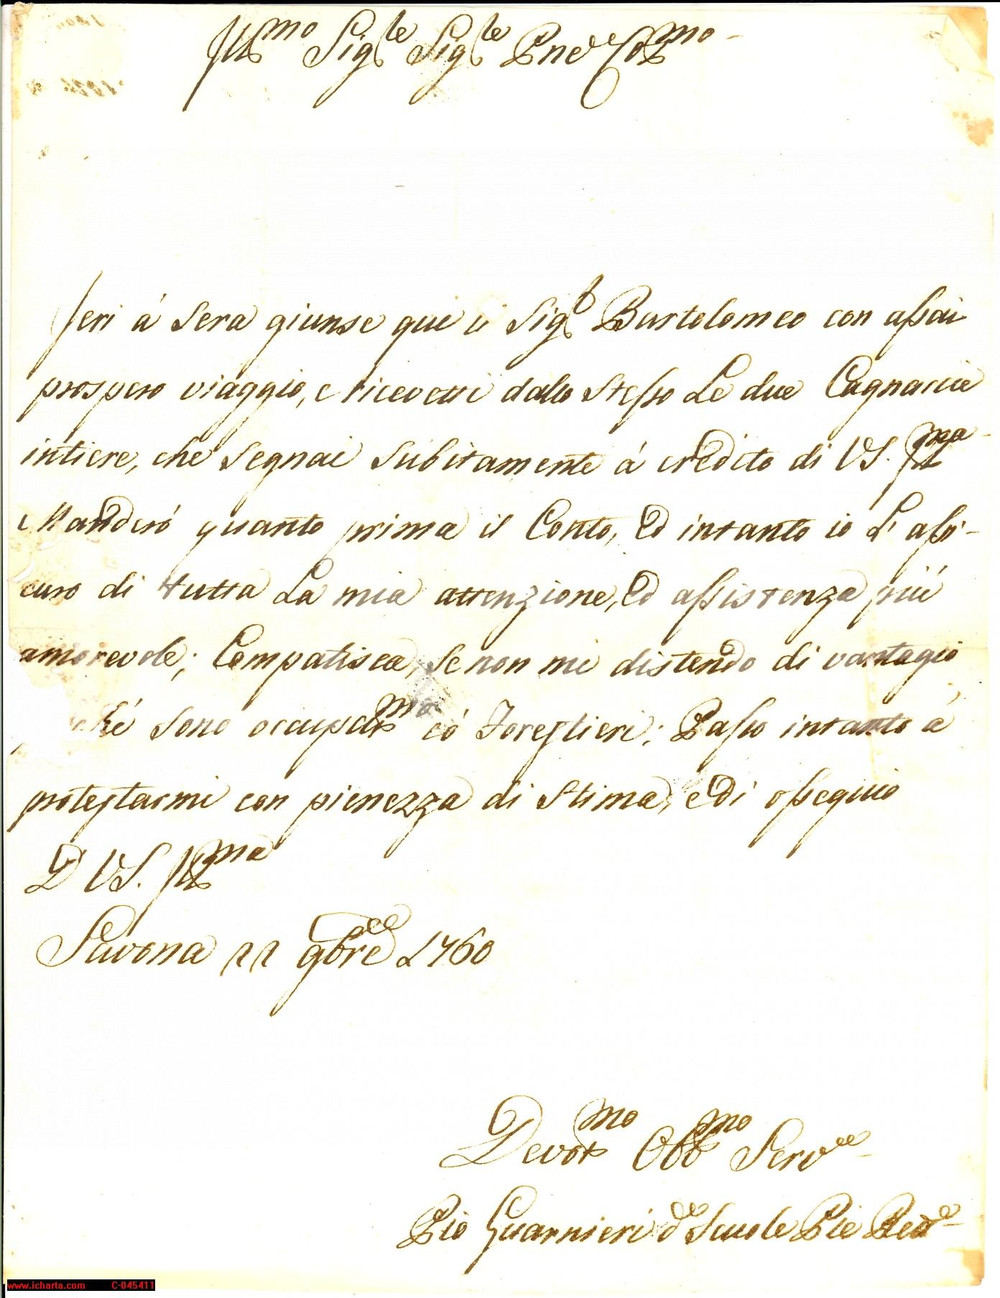 Ill.mo Sig.re Sig.re Pne Col.mo
Jeri á sera giunse qui il Sig.r Bartolomeo con assai
prospero viaggio, e ricevetti dallo stesso Le due Cagnacie
intiere, che segnai subitamente á credito di VS. Ill.ma
Manderó quanto prima il Conto, Ed intanto io L'assi-
curo di tutta La mia attenzione, Ed assistenza piú
amorevole; Compatisca, se non mi distendo di vantagio
ché sono occupat.mo có Forestieri; Passo intanto á
protestarmi con pienezza di stima, e di ossequio
D VS. Ill.ma
Savona 22 9bre 1760
Devot.mo Obb.mo Serv.e
Pio Guarnieri d.e Scuole Pie
www.icharta.com C-045411